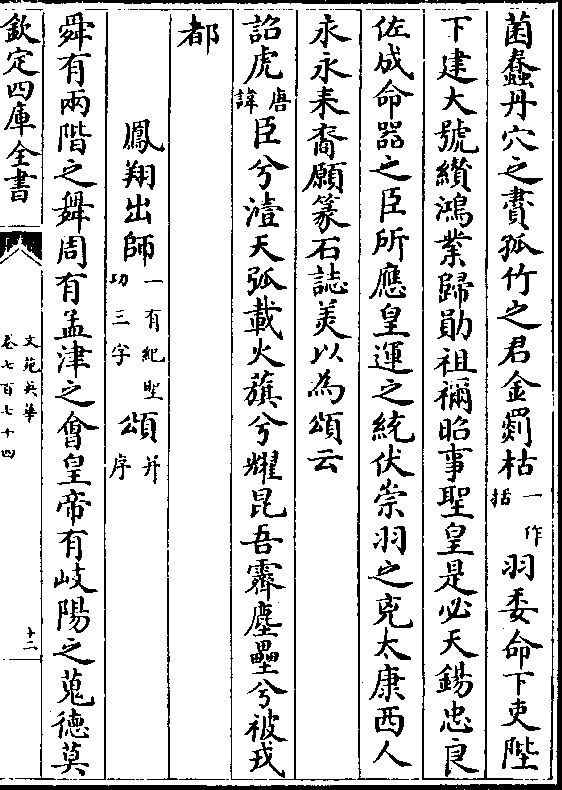 菌蠢丹穴之賮孤竹之君金罽枯一作楛羽委命下吏陛
下建大號纘鴻業歸勛祖禰昭事聖皇是必天錫忠良
佐成命器之臣所應皇運之統伏崇羽之克太康西人
永永耒裔願篆石誌美以為頌云
詔虎唐諱臣兮澬天弧載火旗兮耀昆吾霽塵壘兮被戎
都
鳳翔出師一有紀聖功三字頌并序
舜有兩階之舞周有孟津之會皇帝有岐陽之蒐德莫
欽定四庫全書
文苑英華
卷七百七十四
十二